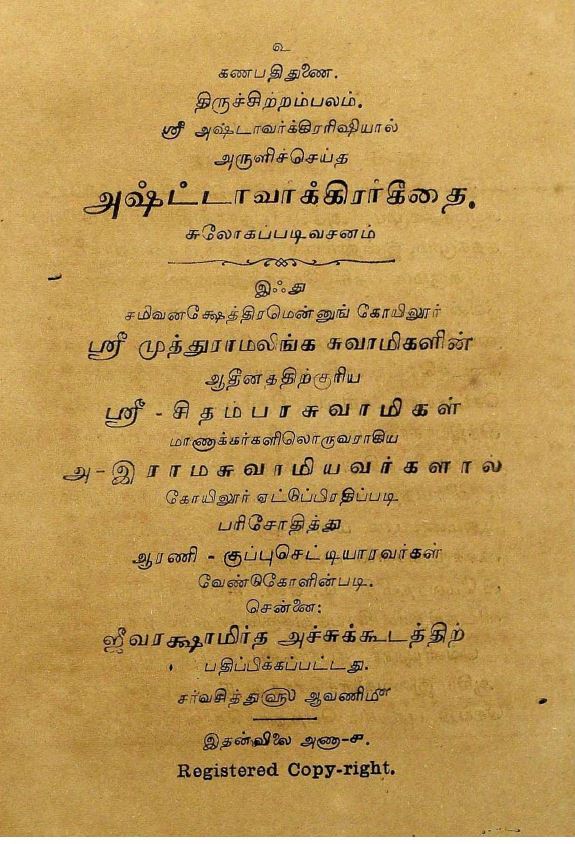 உ
கணபதிதுணை.
திருச்சிற்றம்பலம்.
ஸ்ரீ அஷ்டாவர்க்கிரரிஷியால்
அருளிச்செய்த
அஷ்ட்டாவாக்கிரர்கீதை.
சுலோகப்படிவசனம்
இஃது
சமிவனக்ஷேத்திரமென்னுங் கோயிலூர்
ஸ்ரீ முத்துராமலிங்க சுவாமிகளின்
ஆதீனததிற்குரிய
ஸ்ரீ - சிதம்பரசுவாமிகள்
மாணாக்கர்களிலொருவராகிய
அ-இராமசுவாமியவர்களால்
கோயிலூர் ஏட்டுப்பிரதிப்படி
பரிசோதித்து
ஆரணி - குப்புசெட்டியாரவர்கள்
வேண்டுகோளின்படி.
சென்னை:
ஜீவரக்ஷாமிர்த அச்சுக்கூடத்திற்
பதிப்பிக்கப்பட்டது.
சர்வசித்து௵ ஆவணி௴
இதன்விலை அணா-௪.
Registered Copy-right.